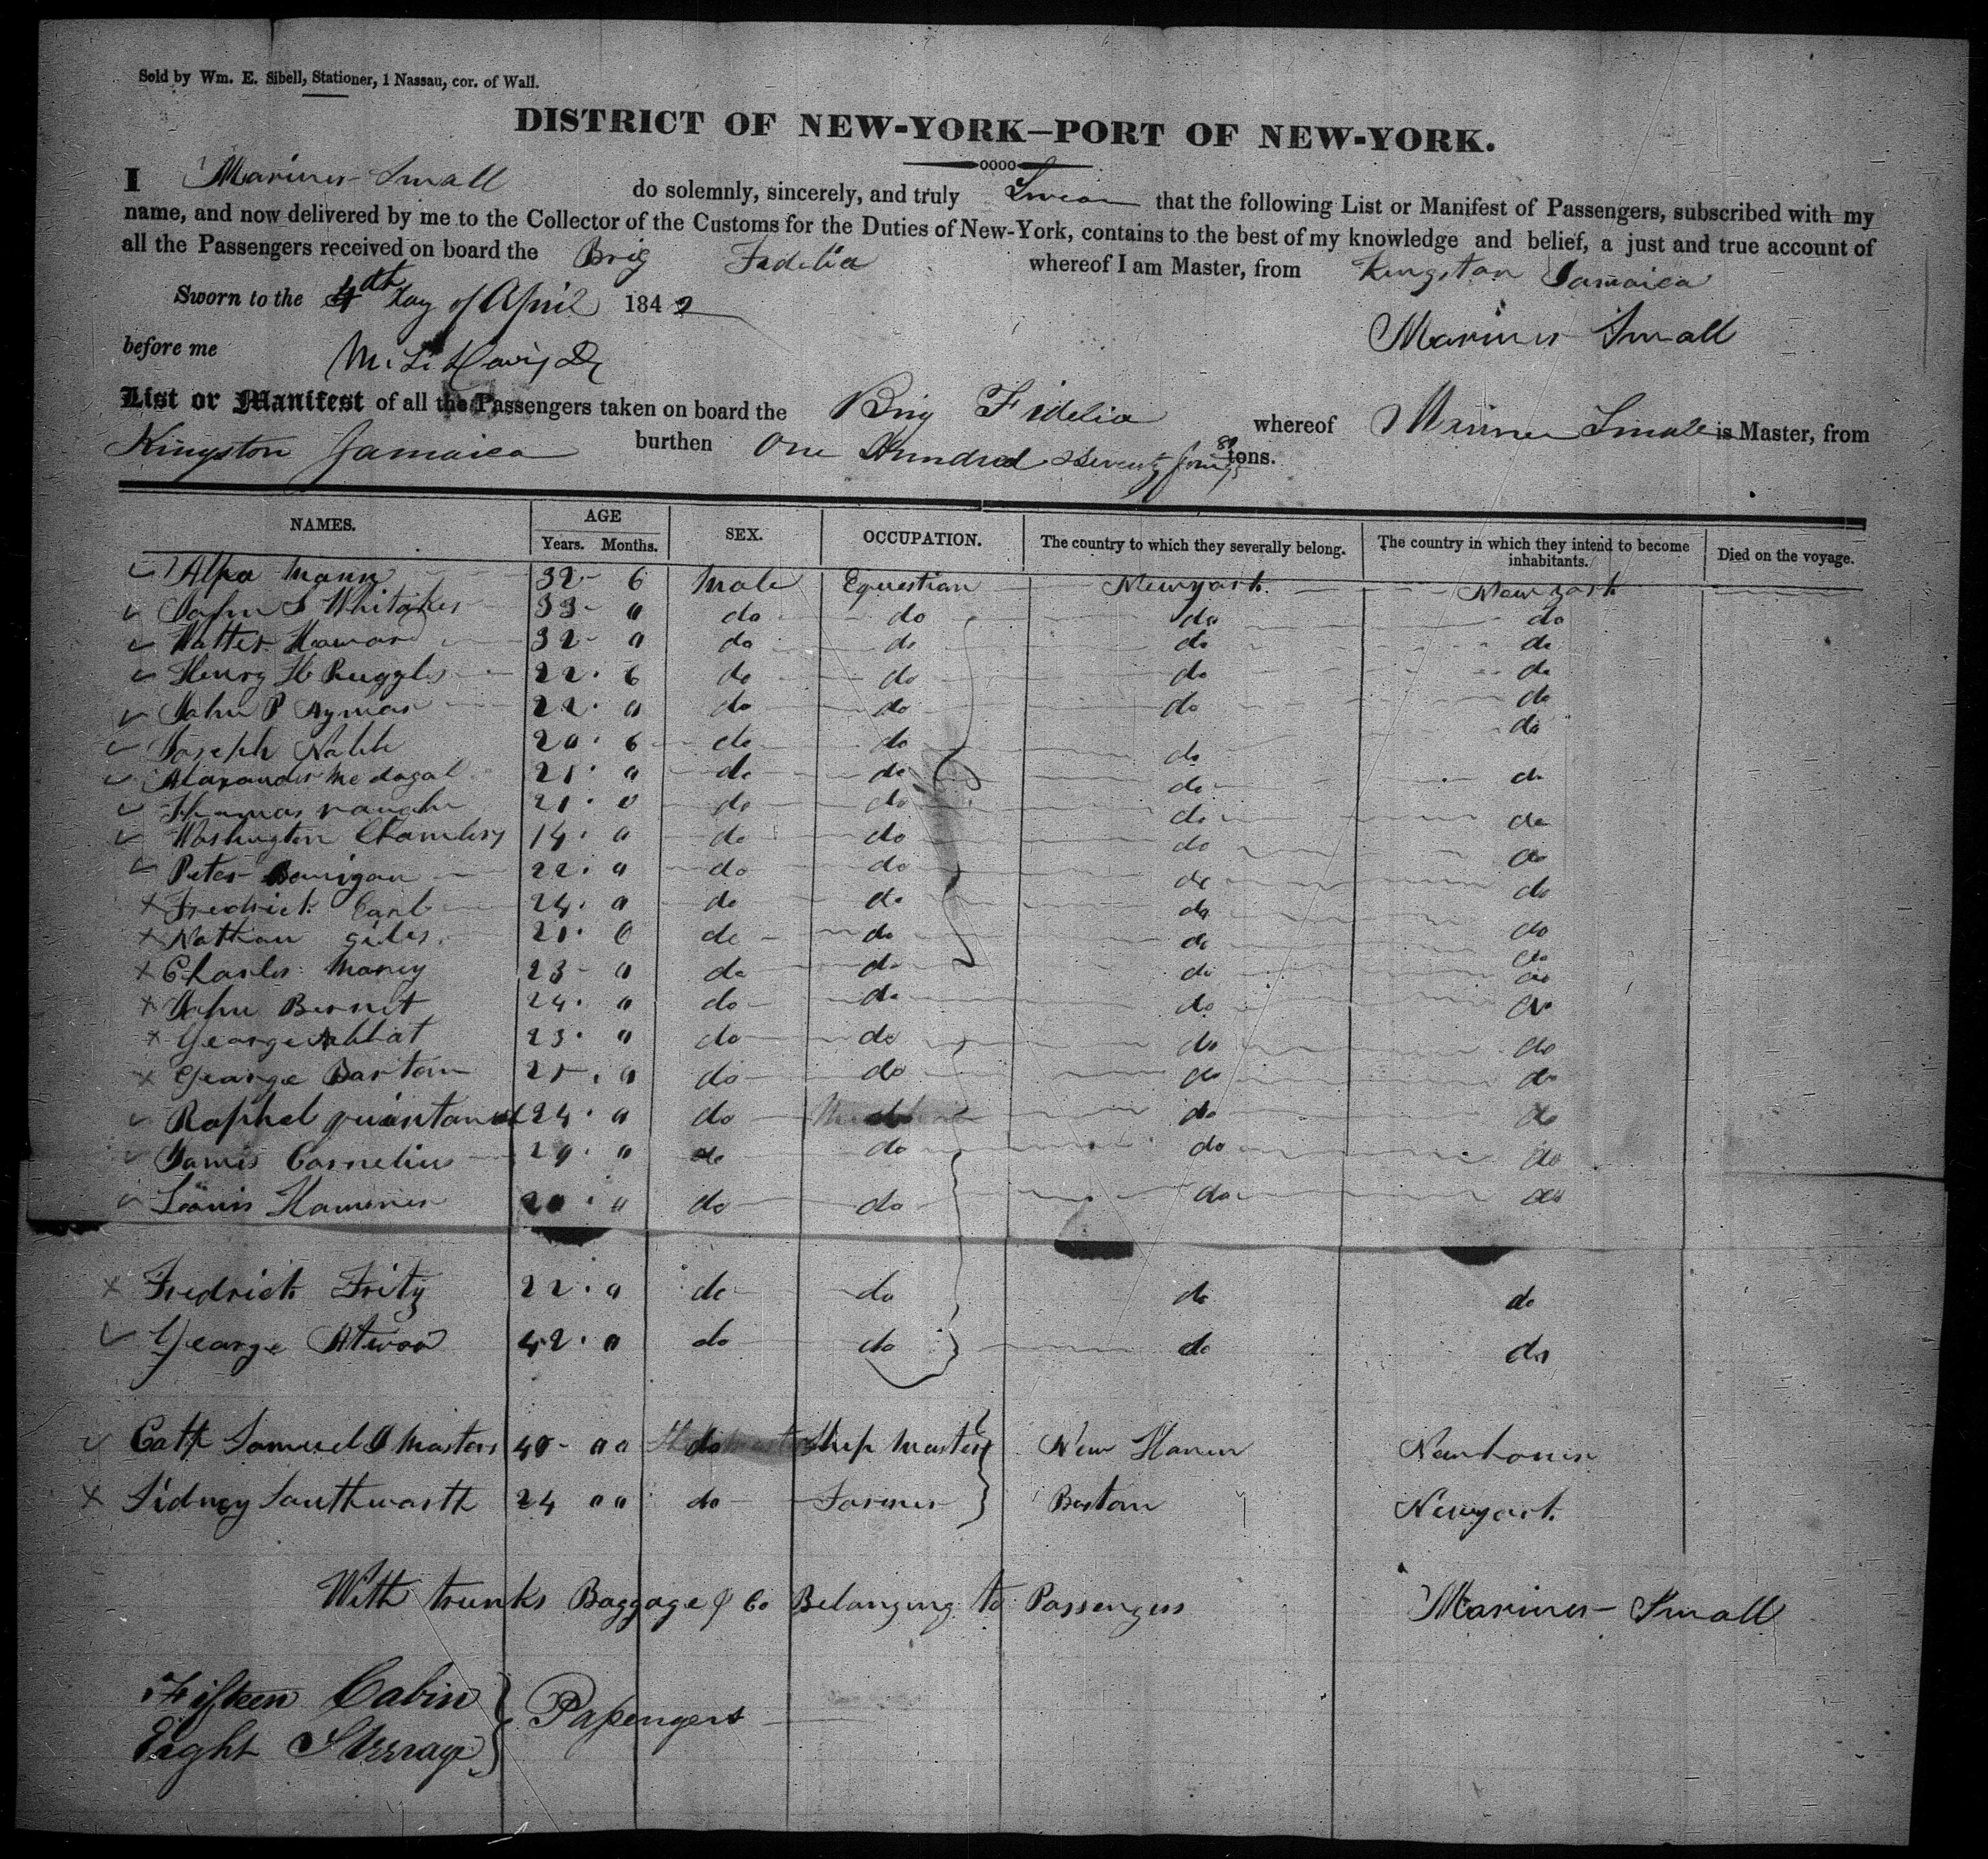 Sold by Wm. E. Sibell, Stationer, 1 Nassau, cor. of Wall.
DISTRICT OF NEW-YORK—PORT OF NEW-YORK.
I Mariner Small do solemnly, sincerely, and truly Swear that the following List or Manifest of Passengers, subscribed with my
name, and now delivered by me to the Collector of the Customs for the Duties of New-York, contains to the best of my knowledge and belief, a just and true account of
all the Passengers received on board the Brig Fidelia whereof I am Master, from Kingston Jamaica
Sworn to the 4th day of April 1842
Mariner Small
before me
List or Manifest of all the Passengers taken on board the Brig Fidelia whereof Mariner Small is Master, from
Kingston Jamaica burthen One Hundred & Seventy four tons.
NAMES. AGE Years. Months. SEX. OCCUPATION. The country to which they severally belong. The country in which they intend to become inhabitants. Died on the voyage.
Mann 32 - 6 Male Equestrian Newyork Newyork
John S Whitaker 33 - " do do do do
Walter Howard 32 - " do do do do
Henry H Ruggles 22 . 6 do do do do
John P Aymar 22 . " do do do do
Joseph 20 . 6 do do do do
Alexander Mc dogal 21 . " do do do do
Thomas 21 . 0 do do do do
Washington Chambers 14 . " do do do do
Peter 22 . " do do do do
Fredrick Carl 24 . " do do do do
Nathan Giles 21 . 6 do do do do
Charles 23 - " do do do do
John Bernet 24 . " do do do do
George Abbat 23 . " do do do do
George Bartom . " do do do do
Raphel 24 . " do do do
James Cornelius . " do do do do
Louis 20 . " do do do do
Fredrick Fritz 22 . " do do do do
George Atwood 42 . " do do do do
Capt Samuel Masters 40 - " " do Ship Master New Haven Newhaven
Sidney Southworth 24 " " do Farmer Bostom Newyork
With trunks Baggage & Co Belonging to Passengers Mariner Small
Fifteen Cabin
Eight Sterrage } Passengers